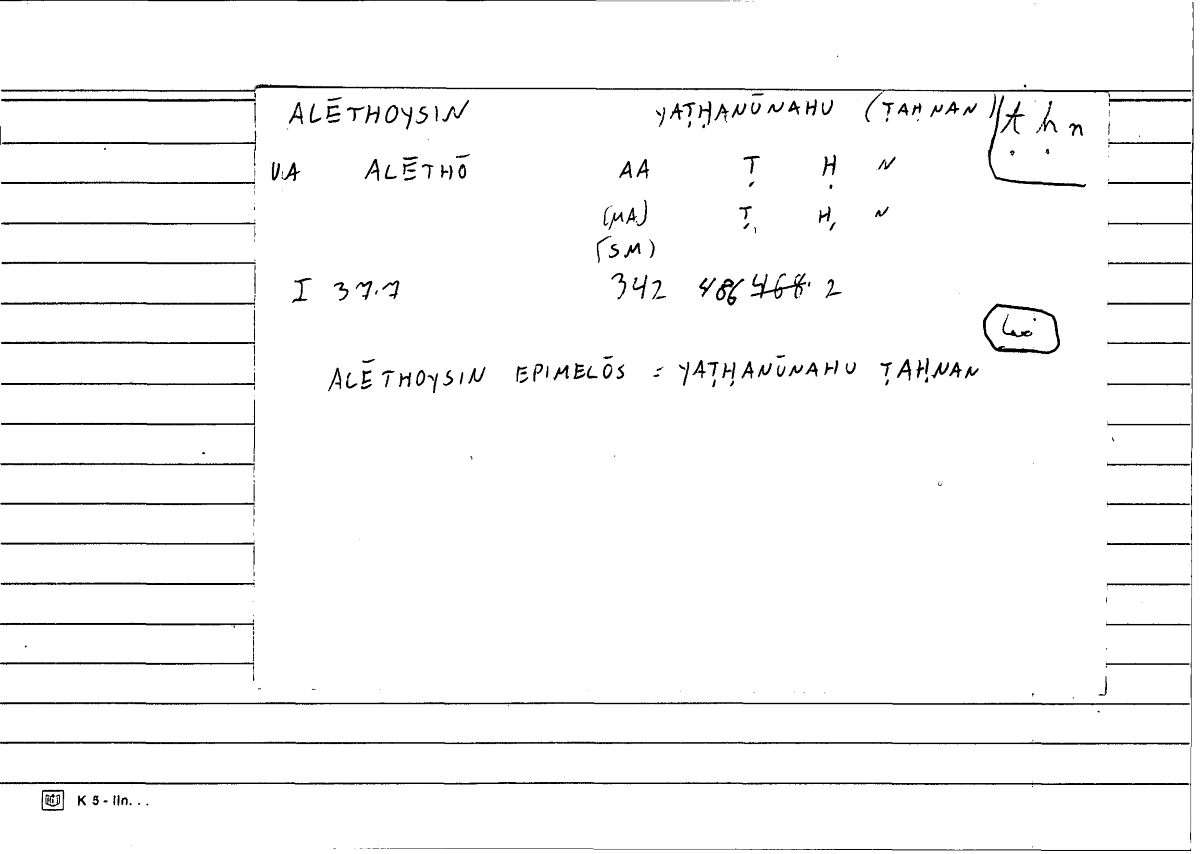 ALĒTHOYSIN YAṬḤANŪNAHU (ṬAḤNAN) ṭ ḥ n
V.A ALĒTHŌ AA Ṭ Ḥ N
(MA) Ṭ Ḥ N
(SM)
I 37.7 342 486 ~~468.~~ 2
ALĒTHOYSIN EPIMELŌS = YAṬḤANŪNAHU ṬAḤNAN
K 5 - lln. . .